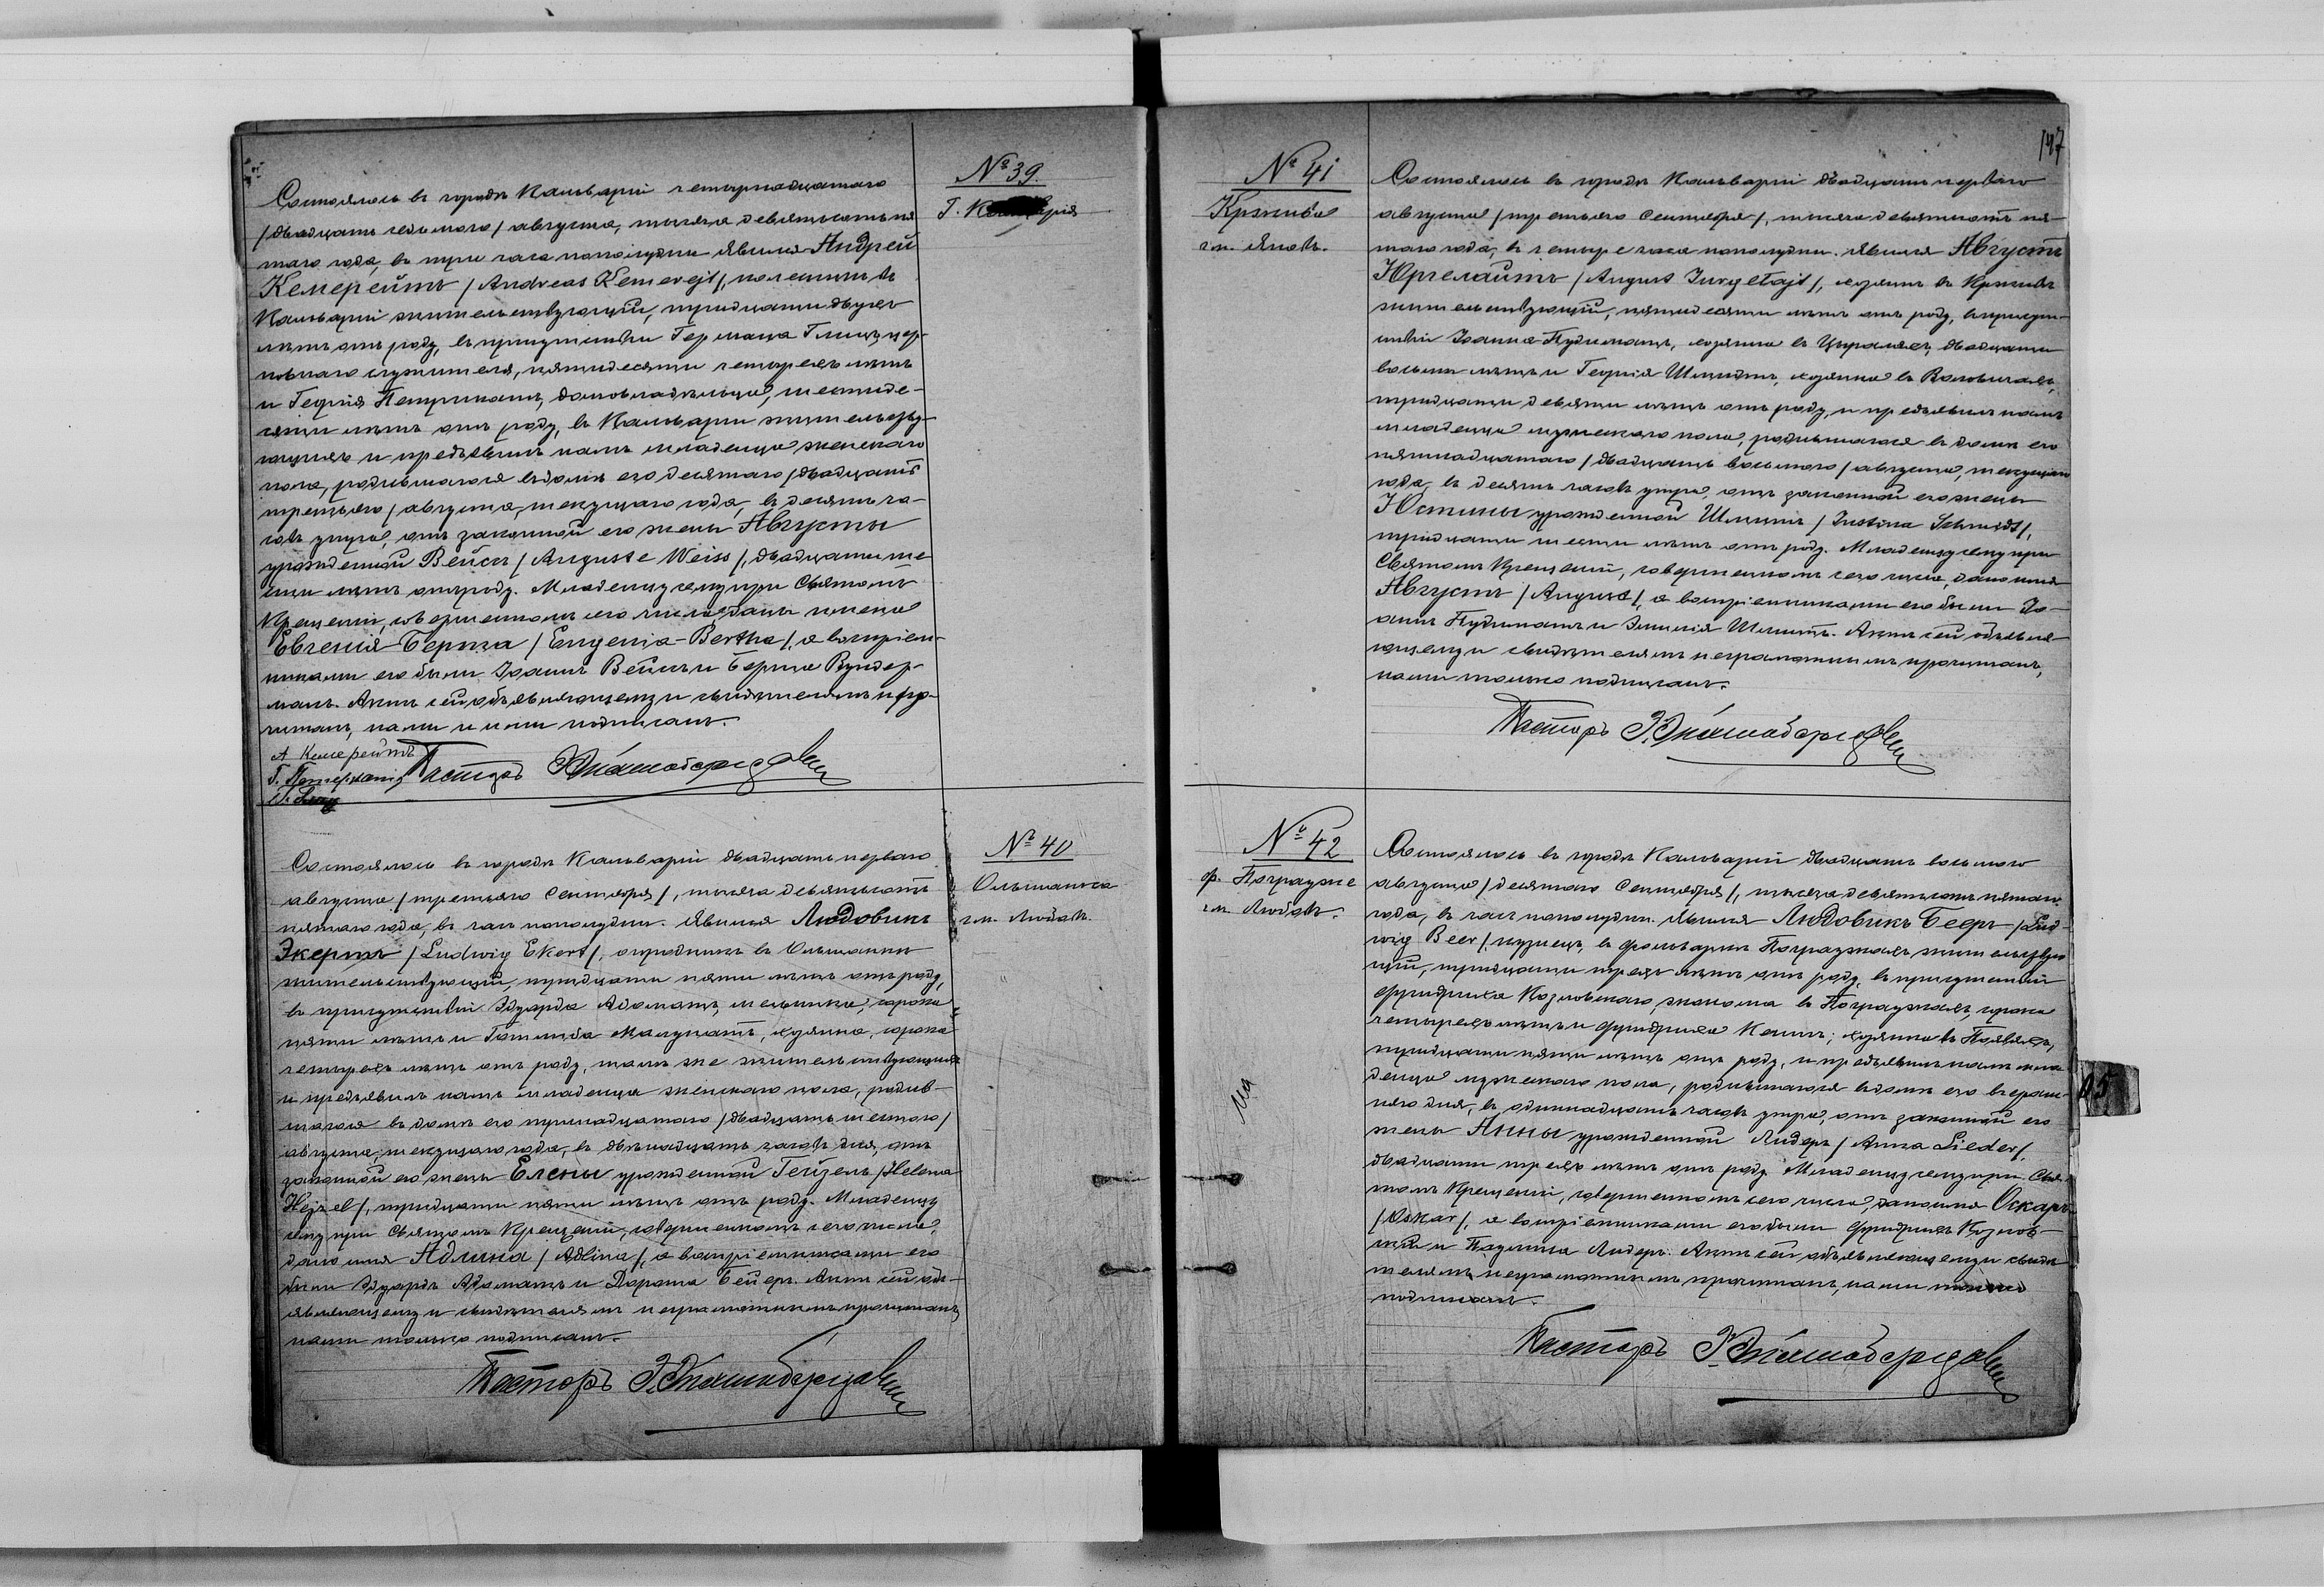 № 39.
Г. Кальварія
Состоялось въ городѣ Кальваріи четырнадцатаго
/двадцать седьмого/ августа, тысяча девятьсотъ пя
таго года, въ три часа пополудни. Явился Андрей
Кемерейтъ /Andreas Kemerejt/, въ
Кальваріи жительствующій, тридцати двухъ
лѣтъ отъ роду, въ присутствіи Германа цер-
ковнаго служителя, пятидесяти четырехъ лѣтъ
и Георгія Петримана, домовладѣльца, шестиде-
сяти лѣтъ отъ роду, въ Кальваріи жительству-
ющихъ и предъявилъ намъ младенца женскаго
пола, родившагося въ домѣ его десятаго /двадцать
третьяго/ августа, текущаго года, въ десять ча-
совъ утра, отъ законной его жены Августы
урожденной Вейсъ /Auguste Weiss/, двадцати ше
сти лѣтъ отъ роду. Младенцу сему при Святомъ
Крещеніи, совершенномъ сего числа, даны имена
Евгенія-Берта /Eugenja-Bertha/, а воспріем-
никами его были Іоаннъ Вейсъ и Берта Вундер-
манъ. Актъ сей объявляющему и свидѣтелямъ про-
читанъ, нами и ими подписанъ.
А Кемерейтъ
Г. Петериманъ Пасторъ
№ 40
Ольшанка
гм. Любовъ.
Состоялось въ городѣ Кальваріи двадцать перваго
августа /третьяго Сентября/, тысяча девятьсотъ
пятаго года, въ часъ пополудни. Явился Людовикъ
Экертъ /Ludwig Ekert/, огородникъ въ Ольшанкѣ
жительствующій, тридцати пяти лѣтъ отъ роду,
въ присутствіи Эдуарда Адомата, мельника, сорока
пяти лѣтъ и Готлиба хозяина, сорока
четырехъ лѣтъ отъ роду, тамъ же жительствующихъ
и предъявилъ намъ младенца женскаго пола, родив-
шагося въ домѣ его тринадцатаго /двадцать шестого/
августа, текущаго года, въ двѣнадцать часовъ дня, отъ
законной его жены Елены урожденной Гейзель /Helena
Hejzel/, тридцати пяти лѣтъ отъ роду. Младенцу
сему при Святомъ Крещеніи, совершенномъ сего числа,
дано имя Адлина /Adlina/, а воспріемниками его
были Эдуардъ Адоматъ и Дорота Бейеръ. Актъ сей объ-
являющему и свидѣтелямъ неграмотнымъ прочитанъ,
нами только подписанъ.
Пасторъ
147
№ 41
Кржива
гм. Яновъ.
Состоялось въ городѣ Кальваріи двадцать перваго
августа /третьяго Сентября/, тысяча девятьсотъ пя-
таго года, въ четыре часа пополудни. Явился Августъ
Юргелайтъ /August Jurgelajt/, хозяинъ въ Крживѣ
жительствующій, пятидесяти лѣтъ отъ роду, въ присут-
ствіи Іоанна хозяина въ двадцати
восьми лѣтъ и Георгія Шмидта, хозяина въ
тридцати девяти лѣтъ отъ роду, и предъявилъ намъ
младенца мужескаго пола, родившагося въ домѣ его
пятнадцатаго /двадцать восьмого/ августа, текущаго
года, въ десять часовъ утра, отъ законной его жены
Юстины урожденной Шмидтъ /Justina Schmidt/,
тридцати шести лѣтъ отъ роду. Младенцу сему при
Святомъ Крещеніи, совершенномъ сего числа, дано имя
Августъ /August/, а воспріемниками его были Іо-
аннъ и Эмилія Шмидтъ. Актъ сей объявля-
ющему и свидѣтелямъ неграмотнымъ прочитанъ,
нами только подписанъ.
Пасторъ
№ 42
ф. Пограуже
гм. Любовъ.
Состоялось въ городѣ Кальваріи двадцать восьмого
августа /десятаго Сентября/, тысяча девятьсотъ пятаго
года, въ часъ пополудни. Явился Людовикъ Бееръ /Lud-
wig Beer/, кузнецъ, въ фольваркѣ Пограужахъ жительствую
щій, тридцати трехъ лѣтъ отъ роду, въ присутствіи
Фридриха Козловскаго, эконома въ Пограужахъ, сорока
четырехъ лѣтъ и Фридриха хозяина въ
тридцати пяти лѣтъ отъ роду, и предъявилъ намъ мла
денца мужескаго пола, родившагося въ домѣ его вчераш-
няго дня, въ одиннадцать часовъ утра, отъ законной его
жены Анны урожденной Лидеръ /Anna Lieder/,
двадцати трехъ лѣтъ отъ роду. Младенцу сему при Свя
томъ Крещеніи, совершенномъ сего числа, дано имя Оскаръ
/Oskar/, а воспріемниками его были Фридрихъ Козлов-
скій и Паулина Лидеръ. Актъ сей объявляющему и свидѣ
телямъ неграмотнымъ прочитанъ, нами только
подписанъ.
Пасторъ
05